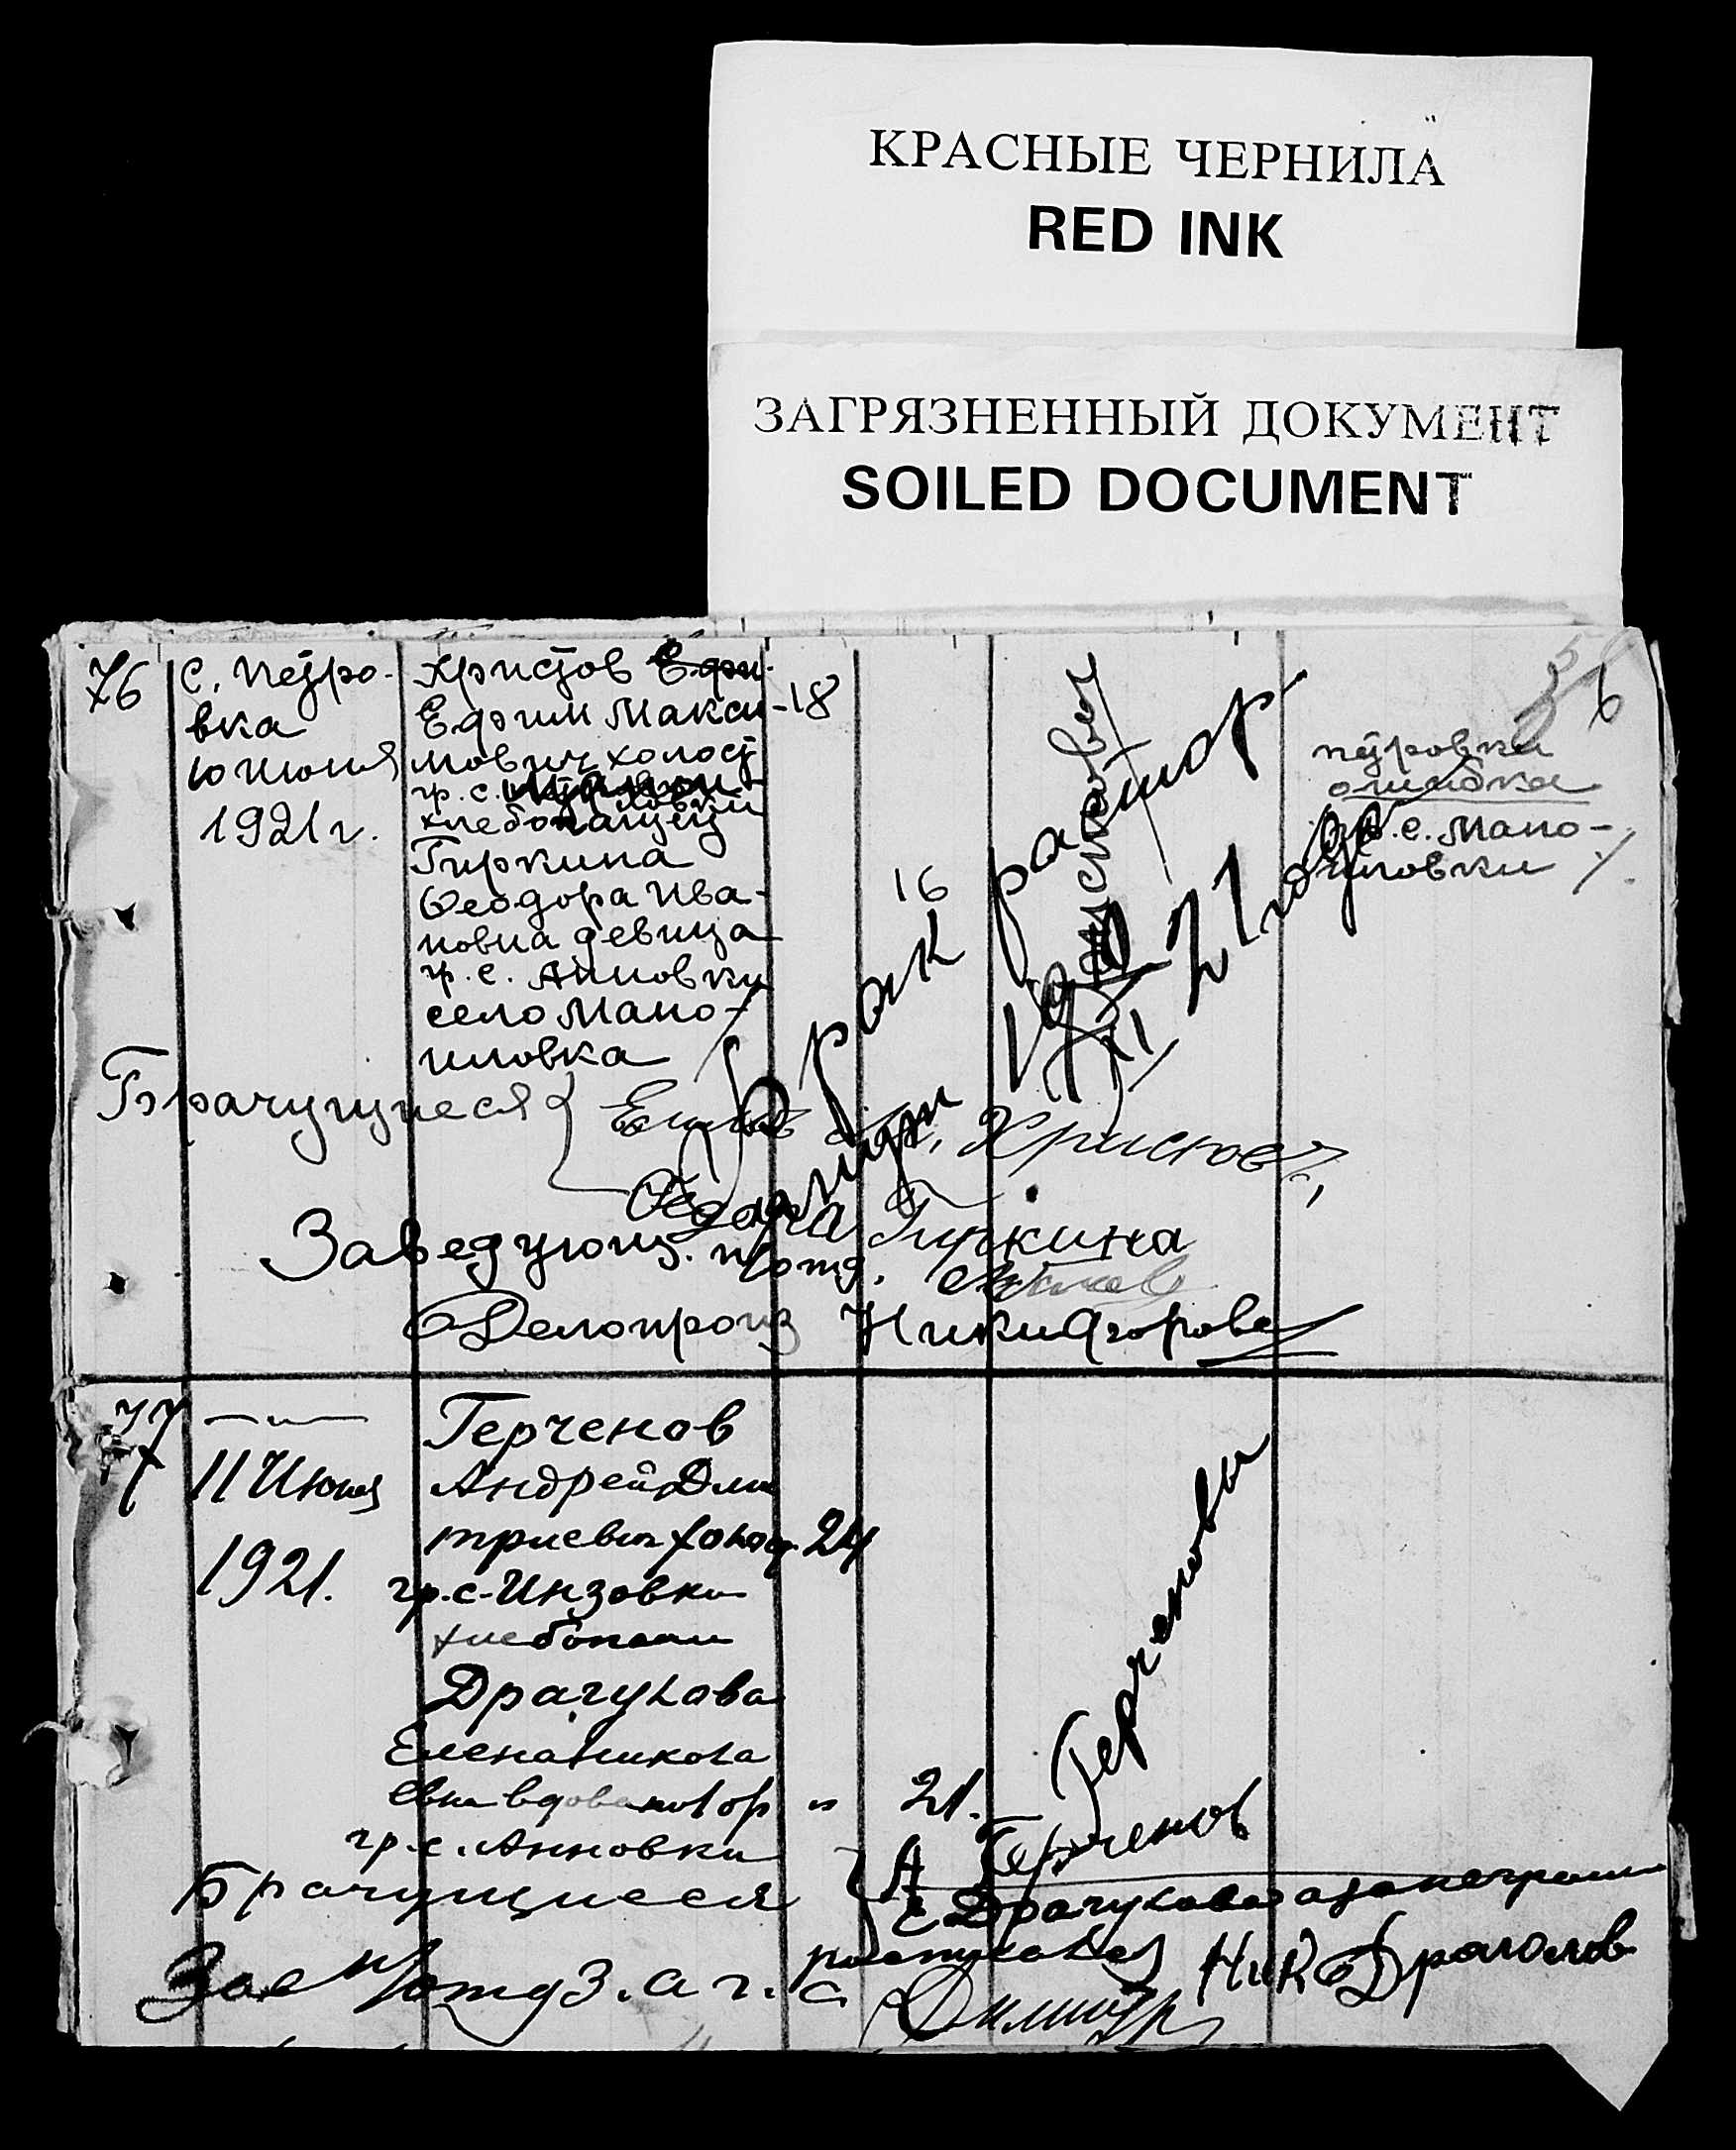 КРАСНЫЕ ЧЕРНИЛА
RED INK
ЗАГРЯЗНЕННЫЙ ДОКУМЕНТ
SOILED DOCUMENT
76
с. Петро-
вка
10 июня
1921 г.
Христов Ефи-
Ефим Макси-
мович холост
гр. с.
хлебопашец
18
Гиркина
Феодора Ива-
новна девица
гр. с. Анновки
село Мано-
йловка
16
Брак расторг
21 года
6
петровки
ошибка
гр. с. Мано-
йловки
Брачущиеся
Христов
Феодора Гиркина
Заведующ. п/отд.
Делопроиз Никифоров
77
11 Июня
1921.
Герченов
Андрей Дми
триевич холост.
гр. с. Инзовки
хлебопаш
24
Драгулова
Елена Никола
евна вдова
гр. с. Анновки
21.
Герченовы
Брачущиеся
А Герченов
Е Драгулова а за неграм
Ник Драголов
Зав п/отд З.А.Г.С.